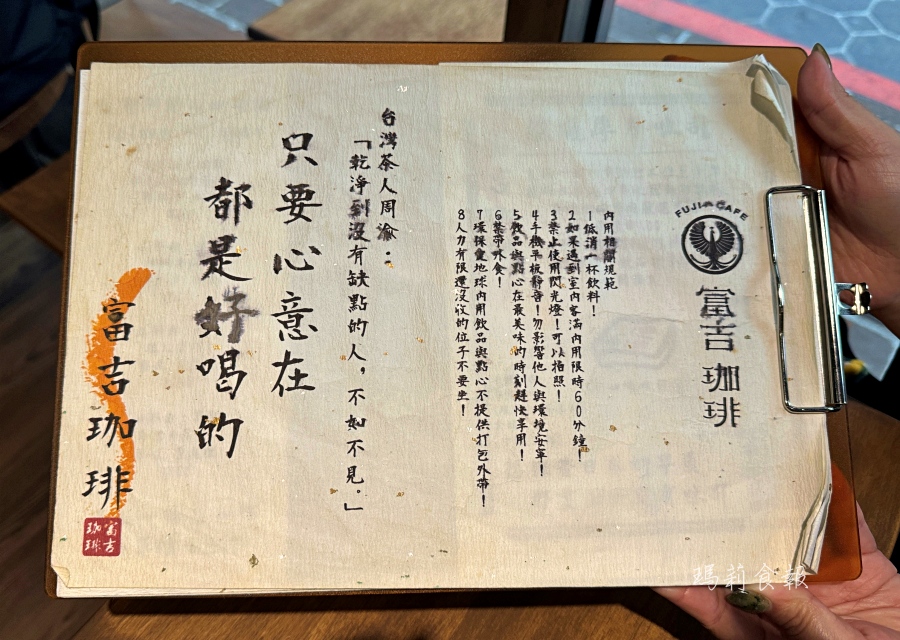 FUJI CAFE
富吉
珈琲
內用相關規範
1低消一杯飲料!
2如果遇到室內客滿內用限時60分鐘!
3禁止使用閃光燈!可以拍照!
4手機平板靜音!勿影響他人與環境安寧!
5飲品與點心在最美味的時刻趕快享用!
6禁帶外食!
7環保愛地球內用飲品與點心不提供打包外帶!
8人力有限還沒收的位子不要坐!
台灣茶人周渝:
「乾淨到沒有缺點的人,不如不見。」
只要心意在
都是好喝的
富吉珈琲
富吉
珈琲
瑪莉食報